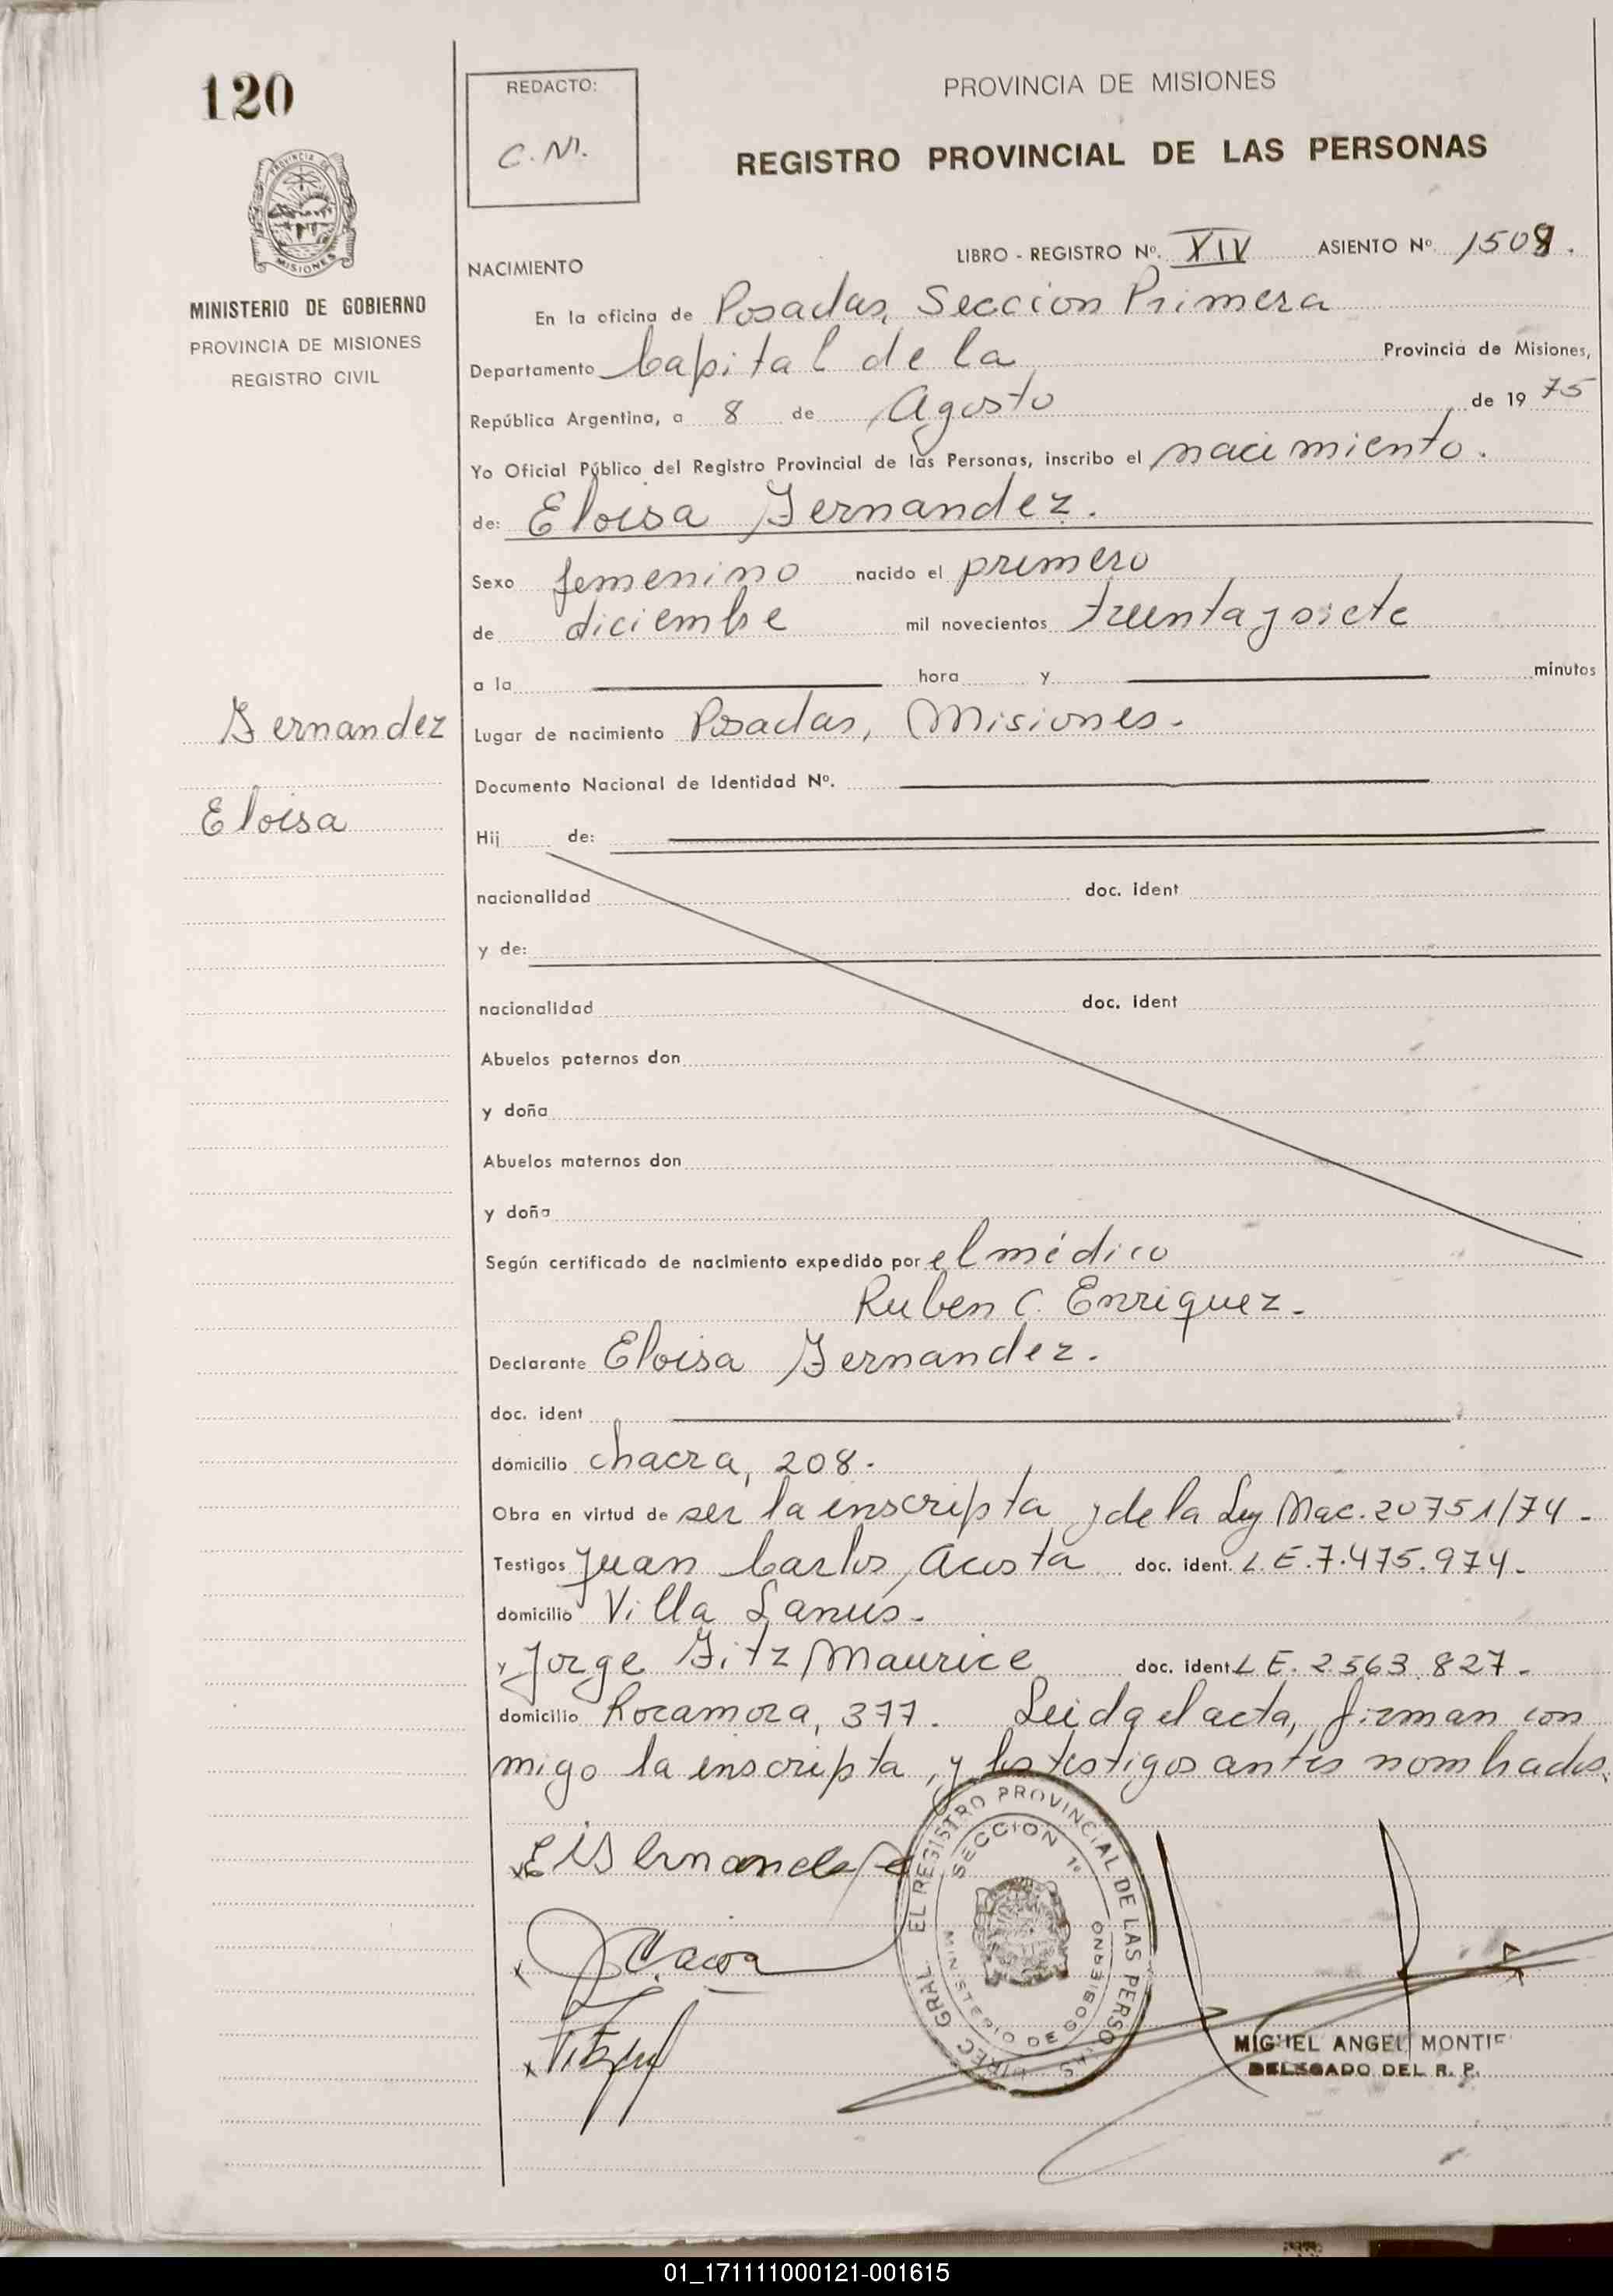 120
REDACTO:
C. M.
PROVINCIA DE MISIONES
REGISTRO PROVINCIAL DE LAS PERSONAS
PROVINCIA DE
MISIONES
MINISTERIO DE GOBIERNO
PROVINCIA DE MISIONES
REGISTRO CIVIL
LIBRO - REGISTRO Nº. XIV ASIENTO Nº 1508.
NACIMIENTO
En la oficina de Posadas, Seccion Primera
Departamento Capital de la Provincia de Misiones,
República Argentina, a 8 de Agosto de 1975
Yo Oficial Público del Registro Provincial de las Personas, inscribo el nacimiento.
de: Eloisa Fernandez.
Sexo femenino nacido el primero
de diciembre mil novecientos treinta y siete
a la hora y minutos
Fernandez
Eloisa
Lugar de nacimiento Posadas, Misiones.
Documento Nacional de Identidad Nº.
Hij de:
nacionalidad doc. ident
y de:
nacionalidad doc. ident
Abuelos paternos don
y doña
Abuelos maternos don
y doña
Según certificado de nacimiento expedido por el médico
Ruben C. Enriquez.
Declarante Eloisa Fernandez.
doc. ident
domicilio chacra, 208.
Obra en virtud de ser la inscripta y de la Ley Nac. 20751/74.
Testigos Juan Carlos Acosta doc. ident. L.E. 7.475.974.
domicilio Villa Lanús.
y Jorge Fitz Maurice doc. ident L E. 2563.827.
domicilio Rocamora, 377. Leida el acta, firman con
migo la inscripta, y los testigos antes nombrados.
DIREC. GRAL. EL REGISTRO PROVINCIAL DE LAS PERSONAS
SECCION 1º
MINISTERIO DE GOBIERNO
MIGUEL ANGEL MONTIE
DELEGADO DEL R. P.
01_171111000121-001615